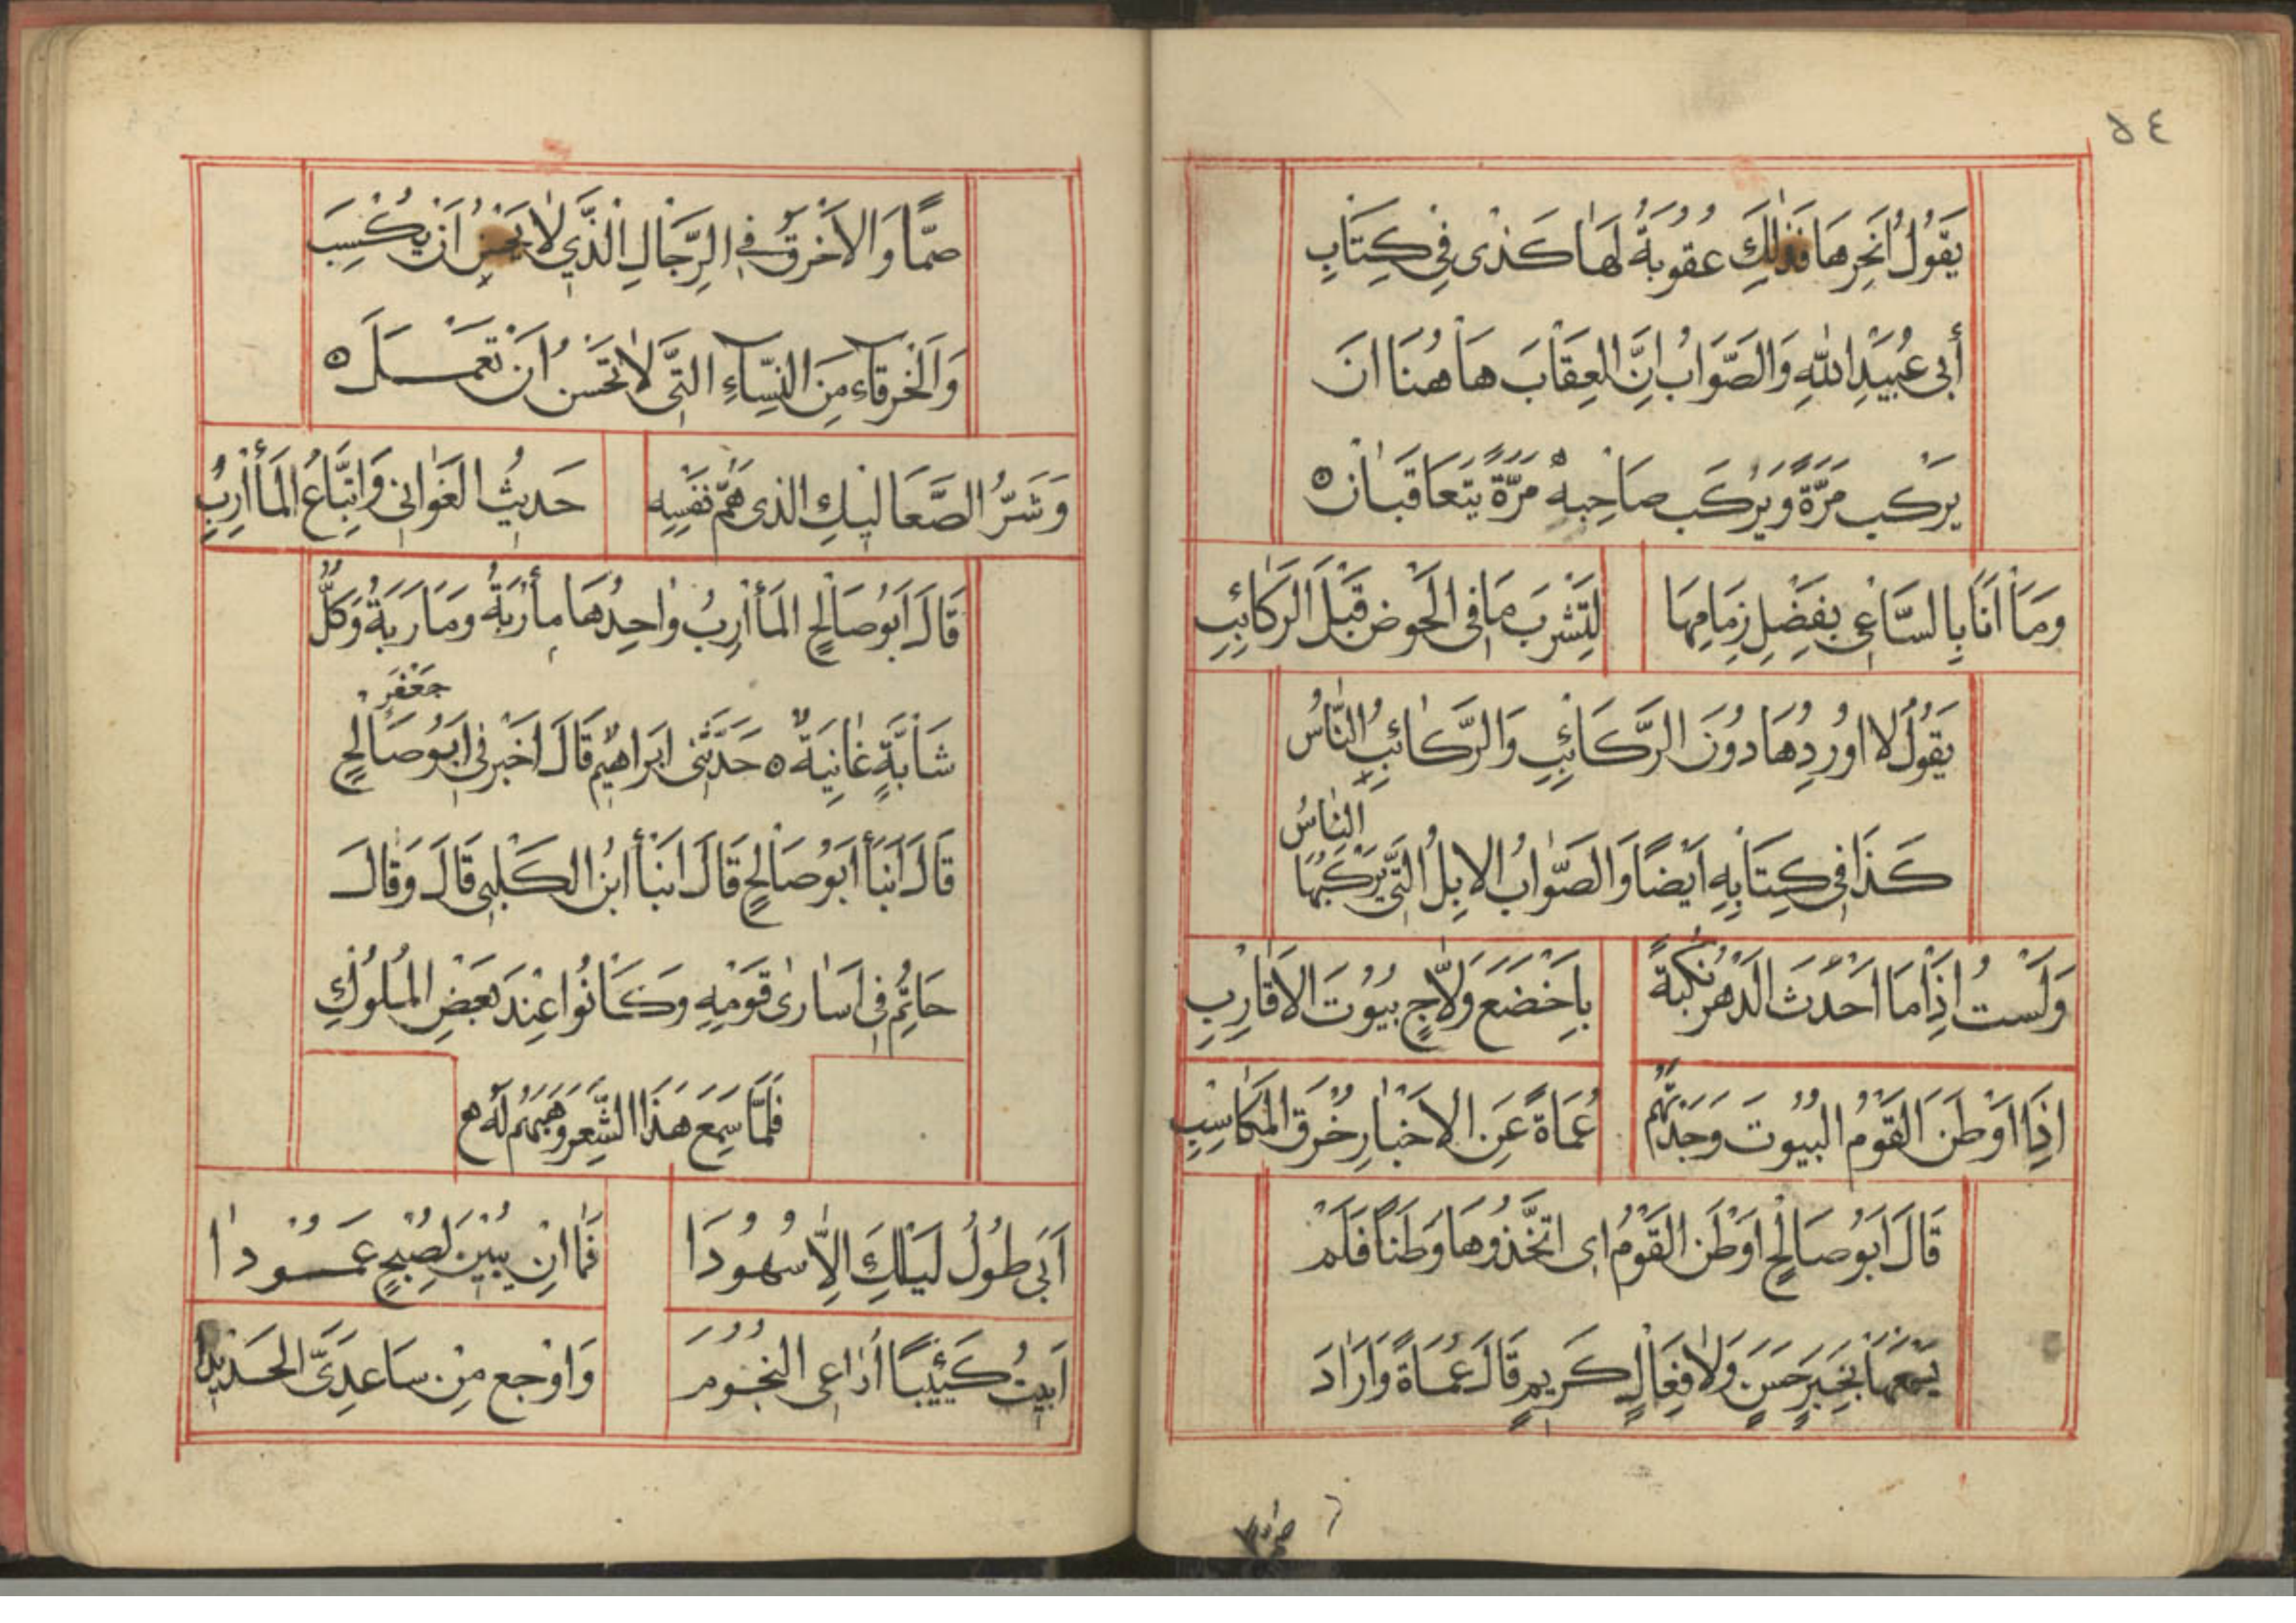 ٥٤
يَقُولُ اَنْحِرهَا فَذَالِكَ عُقُوبَةٌ لَهَا كَذٰى فِي كِتَابِ
أَبِى عُبَيْدِ اللهِ وَالصَّوَابُ اِنَّ العِقَابَ هَا هُنَا انَ
يَرْكَب مَرَّةً وَيَرْكَب صَاحِبهُ مَرَّةً يَتَعَاقَبَانِ ۞
وَمَا اَنَا بِالسَّاعِى بِفَضْلِ زِمَامِهَا لِتَشْرَبَ مَا فِى الْحَوْضِ قَبْلَ الرَكَائِبِ
يَقُولُ لا اورُدِهَا دُونَ الرَّكَائِبِ وَالرَّكَائِبُ النَّاسُ
كَذَا فِى كِتَابِهِ اَيْضًا وَالصَّوَابُ الاِبِلُ التَّى يَرْكَبُهَا النَّاسُ
وَلَسْتُ اِذَا مَا اَحْدَثَ الَدْهرُ نكْبَةً بِاَخْضَعَ وَلاَّجٍ بيُوُتَ الاَقَارِبِ
اِذَا اَوْطَنَ القَوْمُ البُيُوتَ وَجَدْتَهُم عُمَاةً عَنِ الاخْبَارِ خُرقَ المَكَاسِبِ
قَالَ اَبُو صَالحٍ اَوْطَنَ القَوْمُ اى اتَّخَذُوهَا وَطَنًا فَلَمْ
يَسْمَعهَا بِخَبَرٍ حَسَنٍ وَلاَ فِعَالٍ كَرِيمٍ قَالَ عُمَاةً وَاَرَادَ
صُمًّا
صُمًّا وَالاَخْرَقُ فِى الرِّجَالِ الَّذِي لاَ يُحْسِنُ اَنْ يَكْسِبَ
وَالْخَرقَاء مِنَ النِسَّاءِ التَّى لاَ تُحَسِنُ اَنْ تَعْمَلَ ۞
وَشَرُّ الصَّعَاليكِ الذى هَمُّ نَفْسِهِ حَدِيثُ الغَوَانى وَاِتِّبَاعُ المَأَارِبِ
قَالَ اَبُو صَالحٍ المَأَارِبُ وَاحِدُهَا مأرُبَةٌ وَمَارَبَةٌ وَكُلُّ
شَابَّةٍ غَانِيَةٌ ۞ حَدَّثَنِى اِبَراهِيم قَالَ اَخْبَرنى اَبُو صَالحٍ جَعْفَر
قَالَ اَنْبَأَ اَبُو صَالحٍ قَالَ اَنْبَأَ ابنُ الكَلْبِى قَالَ وَقَالَ
حَاتِم فِى اَسَارىٰ قَوْمِهِ وَكَانُوا عِنْدَ بَعَضِ المُلوُكِ
فَلَمَّا سَمِعَ هَذَا الشِّعْرَ وَهَبَهُمْ لَهُ
اَبَى طُولُ لَيْلِكَ اِلاَّ سُهُودَا فَمَا اِنْ يُبَيِّن لِصُبْحٍ عَمُودا
اَبِيتُ كَئِيبًا اُرَاعِى النُجُومَ وَاوْجع مِنْ سَاعِدَىَّ الحَدِيدَا